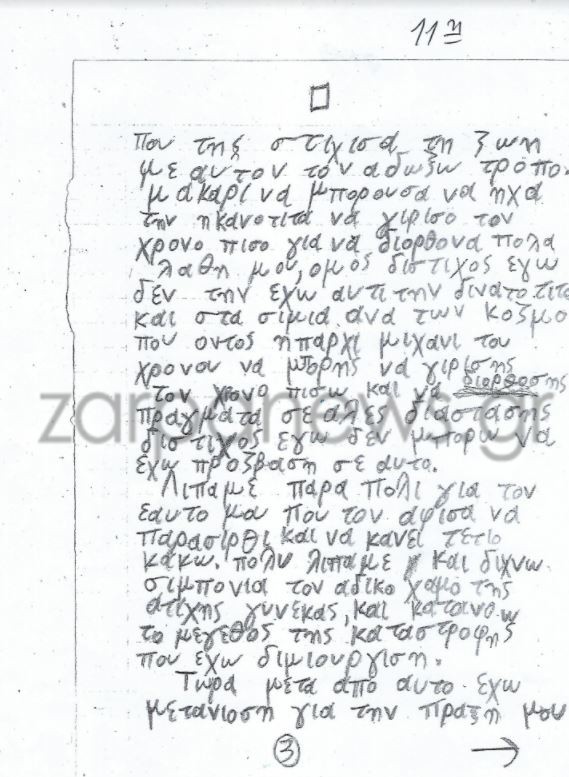 11η
που της στιχισα τη ζωη
με αυτον τον αδωξω τροπο.
μακαρι να μπορουσα να ηχα
την ηκανοτιτα να γιρισο τον
χρονο πισο για να διορθονα πολα
λαθη μου, ομος διστιχος εγω
δεν την εχω αυτι την δινατοτιτα
και στα σιμια ανα των κοζμο
που οντος ηπαρχι μιχανι του
χρονου να μπορης να γιρισης
τον χρονο πισω και να διορθοσης
πραγματα σε αλες διαστασης
διστιχος εγω δεν μπορω να
εχω προζβαση σε αυτα.
Λιπαμε παρα πολι για τον
εαυτο μα που τον αφισα να
παρασιρθι και να κανει τετιο
κακω. πολυ λιπαμε και διχνω
σιμπονια τον αδικο χαμο της
ατιχης γυνεκας, και κατανοω
το μεγεθος της καταστροφης
που εχω διμιουργιση.
Τωρα μετα απο αυτο εχω
μετανιοση για την πραξη μου
3 →
zarpanews.gr